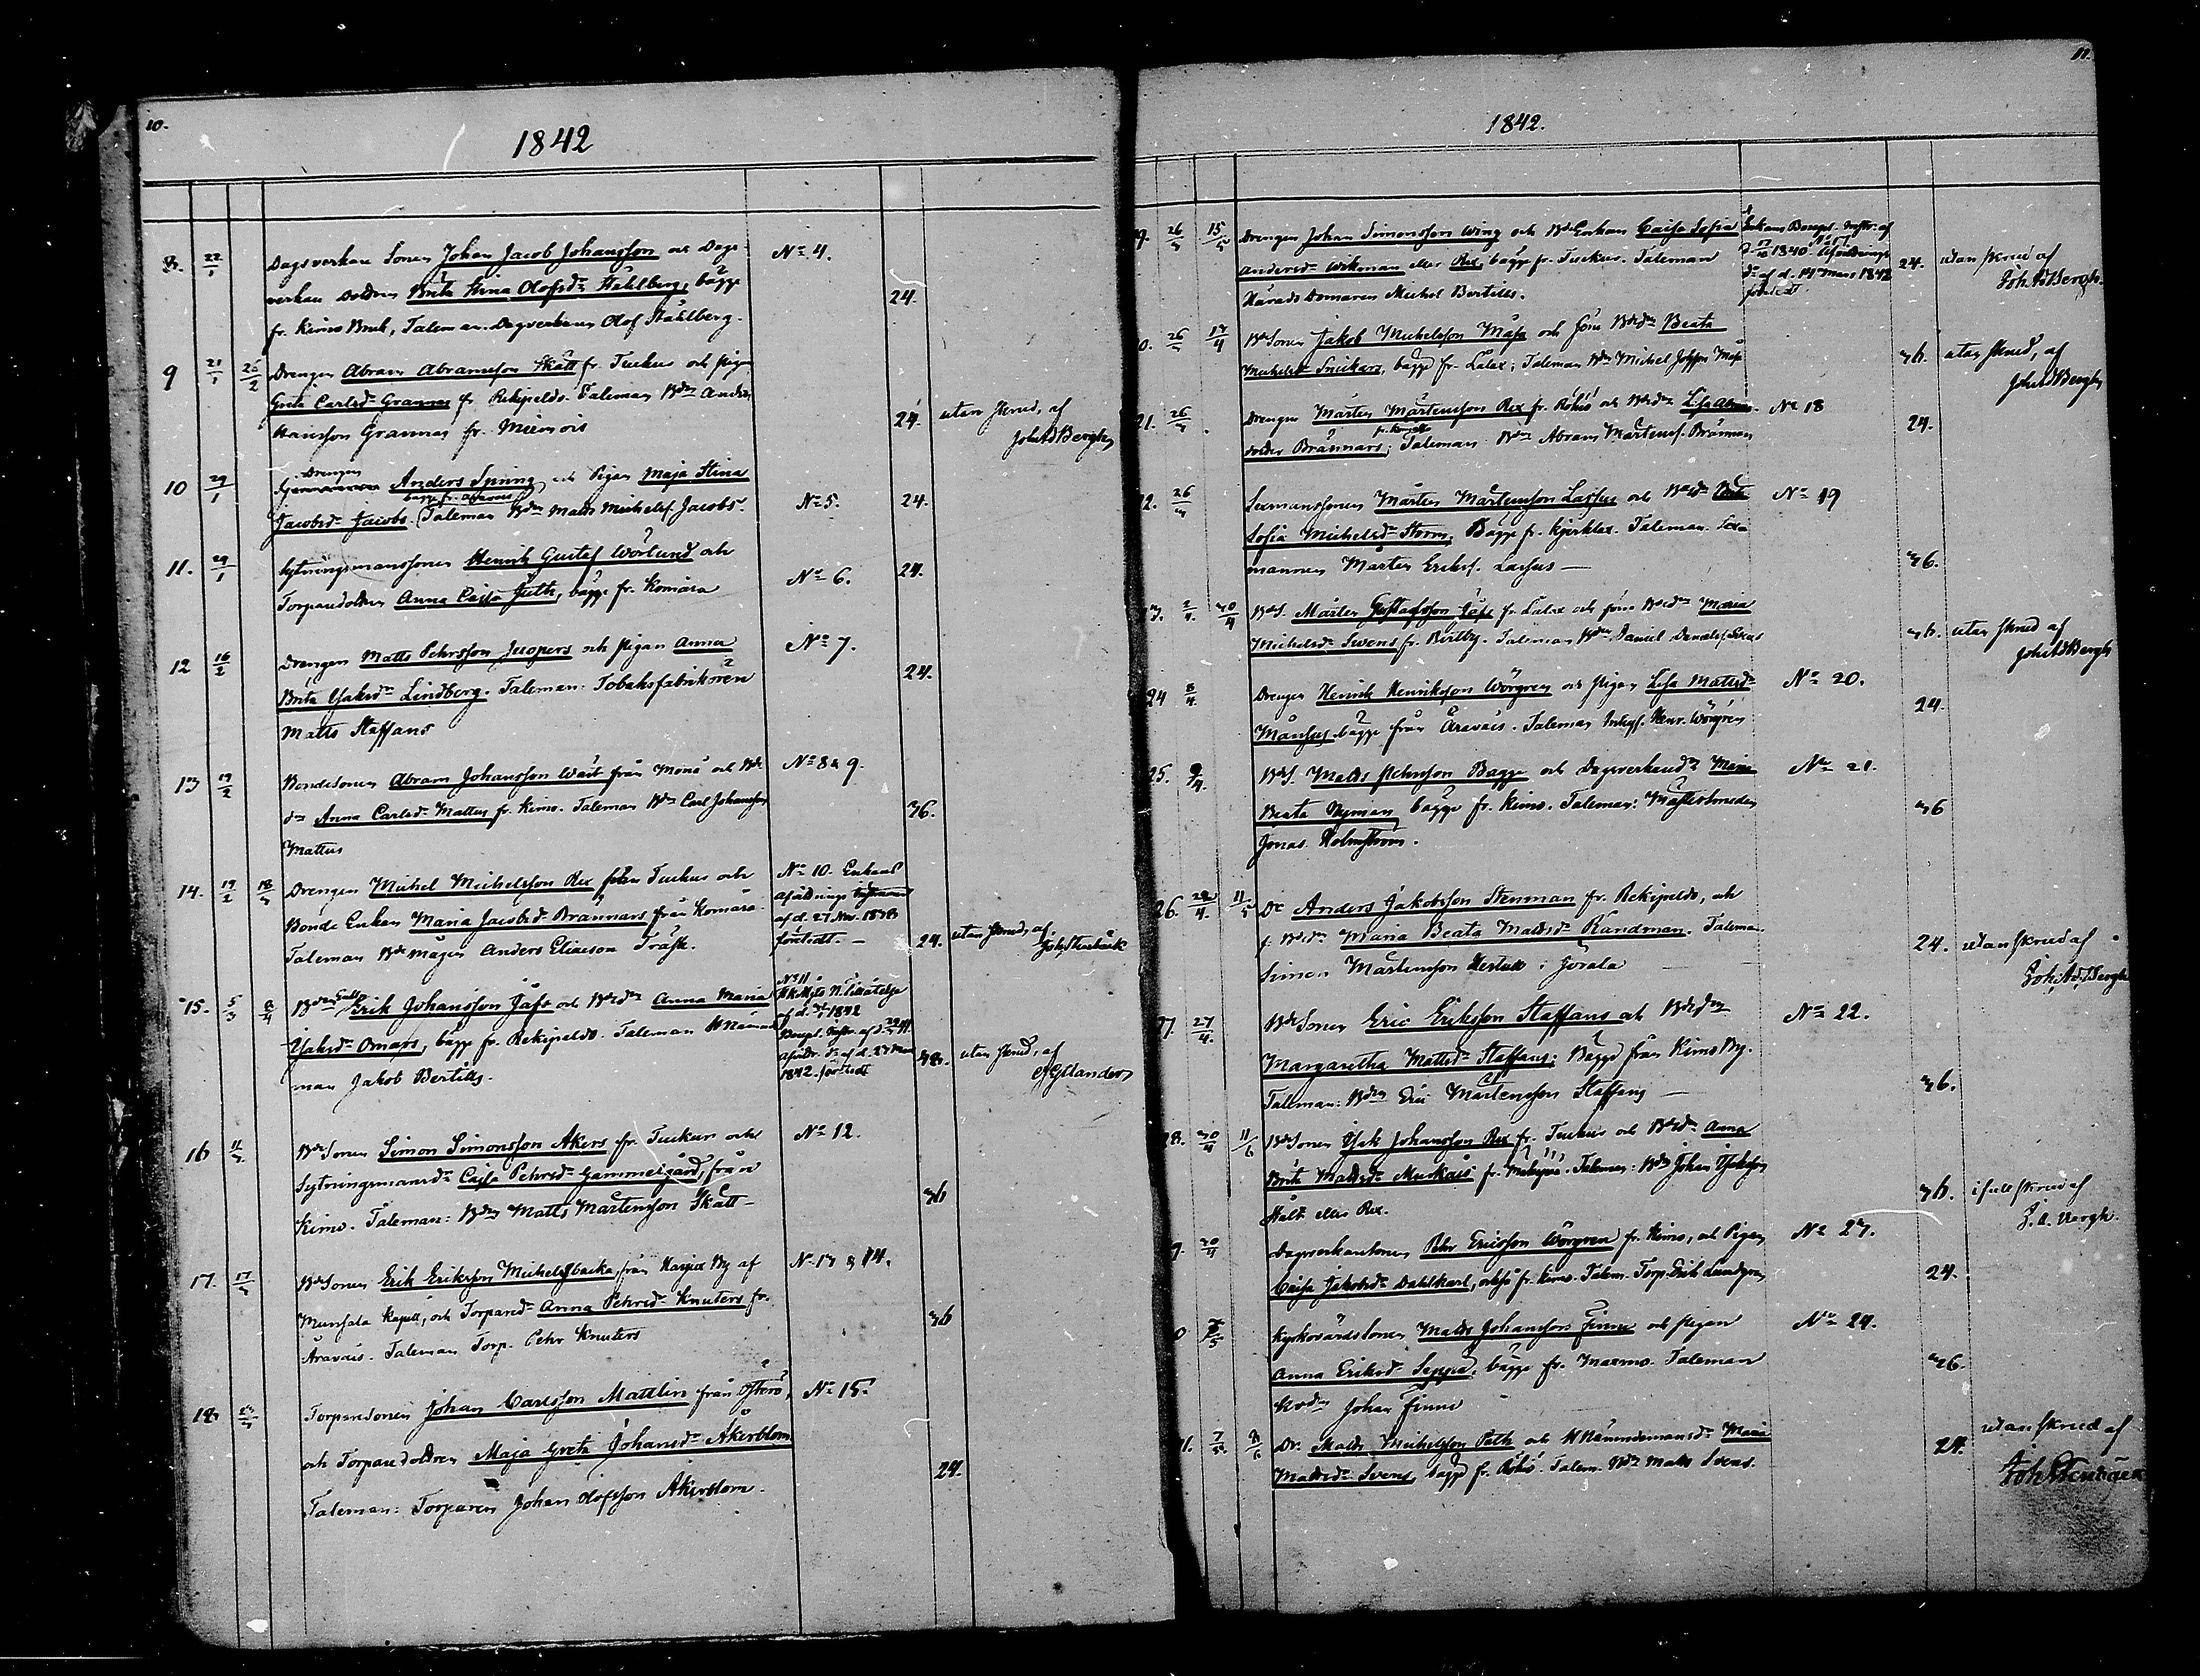 10.
1842
8. 22/1 Dagsverkare Sonen Johan Jacob Johansson och Dags- No 4.
verkare dottren Brita Stina Olofsdr Ståhlberg, bägge 24.
fr. Kimo Bruk, Taleman Dagverkaren Olof Ståhlberg.
9 21/1 25/2 Drengen Abram Abramsson Skått fr. Tuckur och pigan
Greta Carlsdr Grannas fr. Rekipeldo. Taleman Bdn Anders 24. utan skrud, af
Hansson Grannas fr. Miemois JohAdBergh
Drengen
10 29/1 Anders Spring och Pigan Maja Stina
bägge fr.
Jacobsdr Jacobs. Taleman Bdn Matts Michelss. Jacobs. No 5. 24.
11. 29/1 Sytningsmanssonen Henrik Gustaf Wörlund och
Torparedottren Anna Cajsa Juth, bägge fr. Komåra No 6. 24.
12 16/2 Drengen Matts Pehrsson Juopers och pigan Anna No 7.
Brita Isaksdr Lindberg. Taleman: Tobaksfabrikören 24.
Matts Staffans
13 19/2 Bondesonen Abram Johansson Wäst från Mono och Bde No 8 & 9.
dr Anna Carlsdr Mattus fr. Kimo. Taleman Bdn Carl Johansson 36.
Mattus
14. 19/2 18/3 Drengen Michel Michelsson Rex från Tuckur och No 10. Enkans
Bonde Enkan Maria Jacobsdr Brännars från Komåra. afvittrings
af d. 27 Nov. 1838
Taleman Bde mågen Anders Eliaeson Träsk. företedt. — 24. utan skrud, af
Joh. Stenbäck
15. 5/3 8/4 Bdn Enkl. Erik Johansson Jåfs och Bdedr Anna Maria No 11
Isaksdr Omars, bägge fr. Rekipeldo. Taleman H Nämnde
man Jakob Bertills. 1842. företedt 48. utan skrud, af
16 11/3 BdeSonen Simon Simonsson Akers fr. Tuckur och No 12.
Sytningsmansdr Cajsa Pehrsdr Gammelgård, från
Kimo. Taleman: Bdn Matts Mårtensson Skått — 36
17. 17/3 BdeSonen Erik Eriksson Michelsbacka, från Harjux By af No 13 & 14.
Munsala Kapell, och Torparedr Anna Pehrsdr Knuters fr. 36
Åravais. Taleman Torp. Pehr Knuters
18 Torparesonen Johan Carlsson Mattlin från Österö, No 15.
och Torparedottren Maja Greta Johansdr Åkerblom 24.
Taleman: Torparen Johan Olofsson Åkerblom.
11.
1842.
9. 26/3 15/5 Drengen Johan Simonsson Wing och BdeEnkan Caisa Sofia Enkans Bouppt. Instr. af
Andersdr Wikman eller Rex, bägge fr. Tuckur. Taleman 24. utan skrud af
Härads Domaren Michel Bertills. företedt JohAdBergh.
0. 26/3 17/4 BdeSonen Jakob Michelsson Måss och förra Bdedn Beata
Michelsdr Snickars, bägge fr. Lålax; Taleman Bdn Michel Johsson Måss 36. utan skrud, af
JohAdBergh
21. 26/3 Drengen Mårten Mårtensson Rex fr. Rökiö och Bdedr Lisa No 18
Brännars; Taleman Bdn Abram Mårtenss. Brännars 24.
22. 26/3 Sexmanssonen Mårten Mårtensson Lassus och Bdedr Brita No 19
Sofia Michelsdr Storm, Bägge fr. Kjerklax. Taleman. Sex-
mannen Mårten Erikss. Lassus — 36.
3. 2/4 30/4 BdeS. Mårten Gustafsson Jåfs fr. Lålax och förra Bdedr Maria
Michelsdr Svens fr. Bertby. Taleman Bdn Daniel Danielss. Svens 36. utan skrud af
JohAdBergh
24 8/4 Drengen Henrik Henriksson Wörgren och pigan Lisa Matsdr No 20.
Månsus bägge från Åravais. Taleman Inhyss. Henr. Wörgren 24.
25. 9/4 BdeS. Matts Pehrsson Bagge och Dagsverkaredr Maria No 21.
Beata Nyman, bägge fr. Kimo. Taleman: Mästersmeden 36
Jonas Holmström.
26. 22/4 11/5 Dr Anders Jakobsson Stenman fr. Rekipeldo, och
f. Bdedr Maria Beata Mattsdr Randman. Taleman 24. utan skrud af
Simon Mårtensson Hertull i Jörala — Joh. Ad. Bergh
27/4 BdeSonen Eric Eriksson Staffans och Bdedn No 22.
Margaretha Mattsdr Staffans; Bägge från Kimo By.
Taleman: Bdn Eric Mårtensson Staffans — 36.
28. 30/4 11/6 BdeSonen Isak Johansson Rex fr. Tuckur och Bdedr Anna
Brita Mattsdr Murkais fr. Taleman: Bdn Johan Isaksson
Hält eller Rex. 36. i full skrud af
J. A. Bergh.
9. 30/4 Dagsverkaresonen Pehr Ericsson Wörgren fr. Kimo, och Pigan No 23.
Caisa Jakobsdr Dahlkarl, också fr. Kimo. Talem. Torp. Erik Lundgren 24.
0 Kyrkovärdssonen Matts Johansson Finne och pigan No 24.
Anna Eriksdr Seppä, bägge fr. Maxmo. Taleman 36.
Kvdn Johan Finne
1. Dr. Matts Michelsson Path och H Nämndemansdr Maria 24. utan skrud af
Mattsdr Svens, bägge fr. Rökiö. Talem. Bdn Matts Svens. Joh Stenbäck